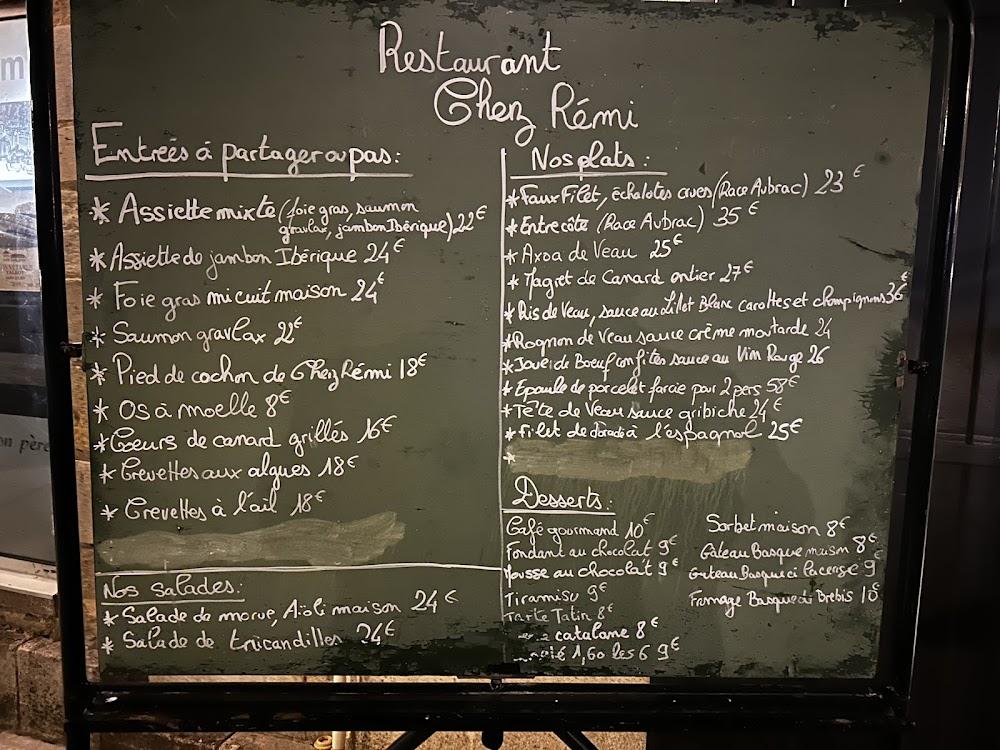 Restaurant
Chez Rémi
Entrées à partager ou pas:
* Assiette mixte (foie gras, saumon
gravlax, jambon Ibérique) 22€
* Assiette de jambon Ibérique 24€
* Foie gras mi cuit maison 24€
* Saumon gravlax 22€
* Pied de cochon de Chez Rémi 18€
* Os à moelle 8€
* Coeurs de canard grillés 16€
* Crevettes aux algues 18€
* Crevettes à l'ail 18€
Nos Salades:
* Salade de morue, Aïoli maison 24€
* Salade de tricandilles 24€
Nos plats:
* Faux Filet, échalotes crues (Race Aubrac) 23€
* Entrecôte (Race Aubrac) 35€
* Axoa de Veau 25€
* Magret de Canard entier 27€
* Ris de Veau, sauce au Lillet Blanc carottes et champignons 36€
* Rognon de Veau sauce crème moutarde 24
* Joue de Boeuf confites sauce au Vin Rouge 26
* Epaule de porcelet farcie pour 2 pers 58€
* Tête de Veau sauce gribiche 24€
* Filet de Dorade à l'espagnol 25€
*
Desserts:
Café gourmand 10€
Fondant au chocolat 9€
Mousse au chocolat 9€
Tiramisu 9€
Tarte Tatin 8€
catalane 8€
1,60 les 6 9€
Sorbet maison 8€
Gateau Basque maison 8€
Gateau Basque 9
Fromage Basque de Brebis 10